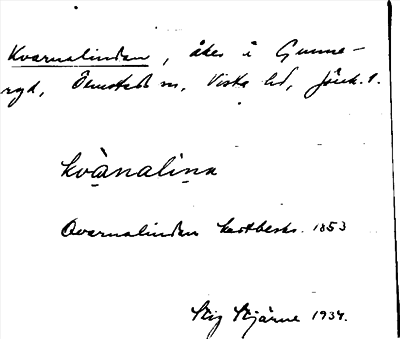 Kvarnalindan, åker i Gunne-
ryd, Ölmstads sn, Vista hd, Jönk. l.
kvànaliṇa
Qvarnalindan kartbeskr. 1853
Stig Stjärne 1934.